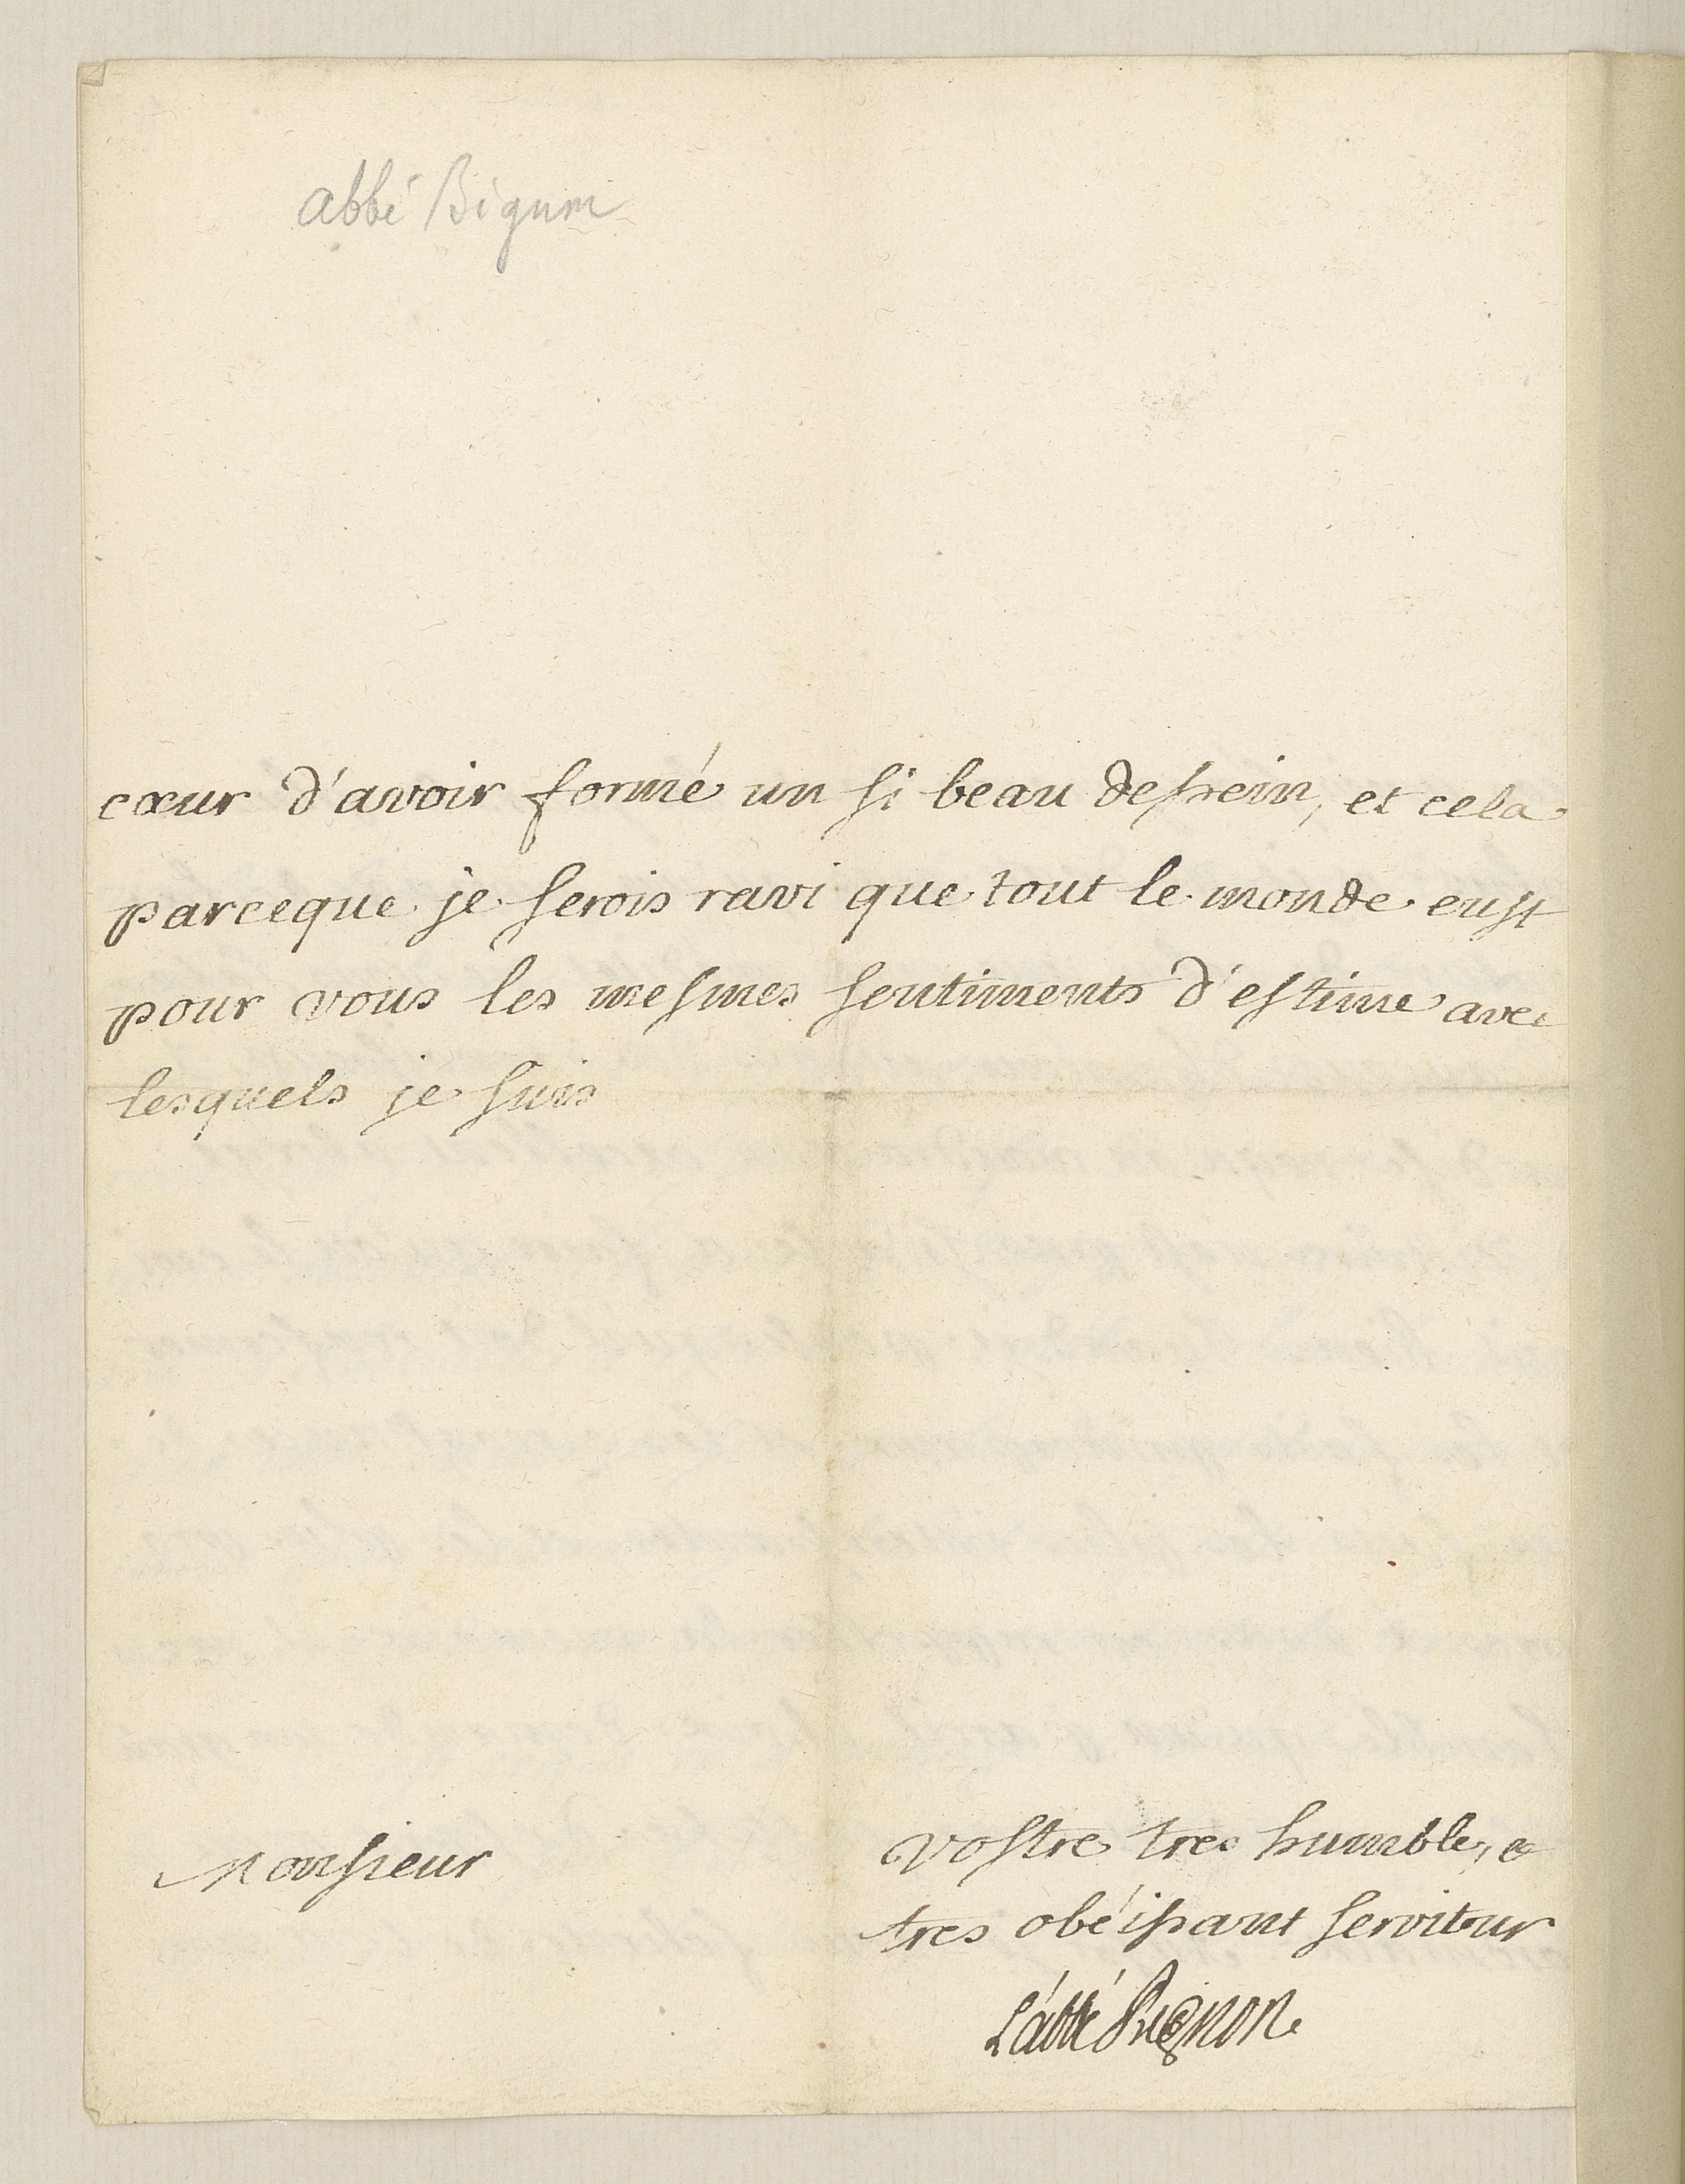 abbé Bignon
cœur d'avoir formé un si beau dessein, et cela
parceque je serois ravi que tout le monde eust
pour vous les mesmes sentiments d'estime avec
lesquels je suis
Monsieur
Vostre tres humble, &
tres obéissant serviteur
L'abbé Bignon